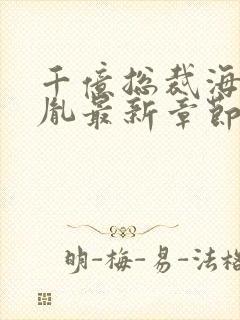 千億总裁海
胤最新章節
明-梅-易-法格